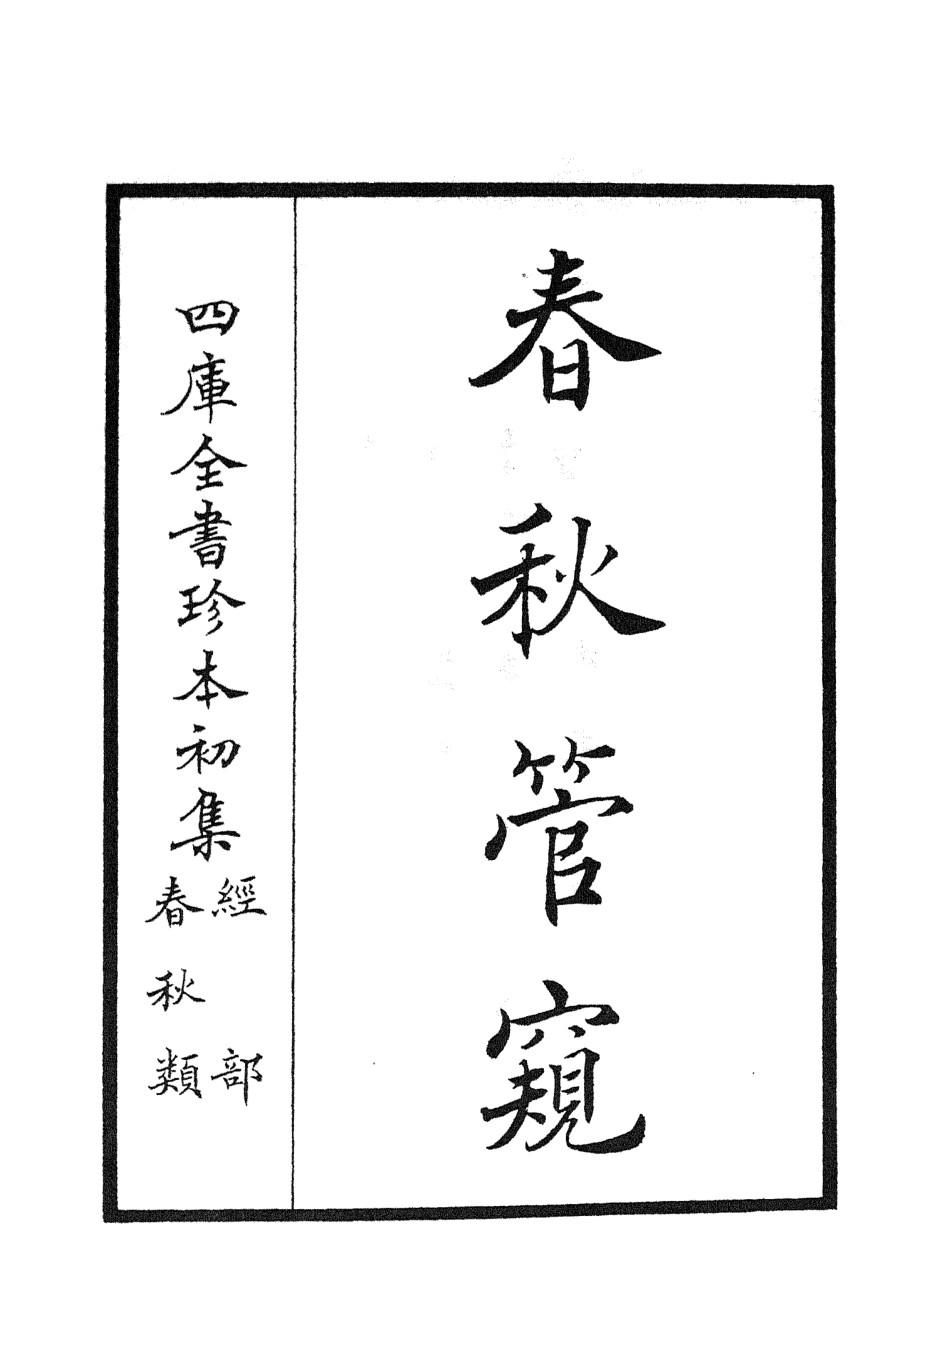 春秋管窺
四庫全書珍本初集
經部
春秋類